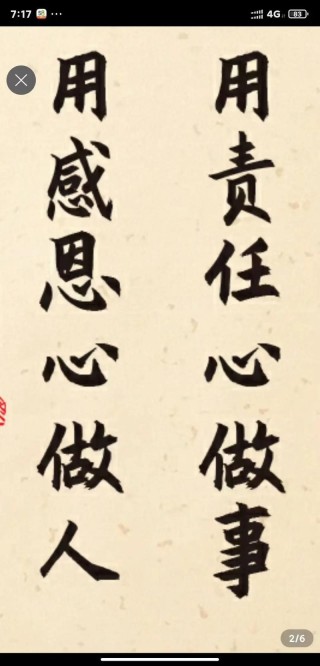 7:17
4G
83
用责任心做事
用感恩心做人
2/6